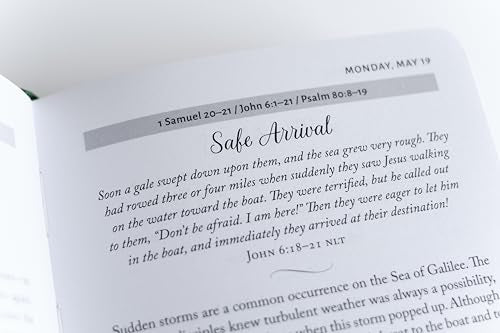 MONDAY, MAY 19
1 Samuel 20–21 / John 6:1–21 / Psalm 80:8–19
Safe Arrival
Soon a gale swept down upon them, and the sea grew very rough. They
had rowed three or four miles when suddenly they saw Jesus walking
on the water toward the boat. They were terrified, but he called out
to them, “Don’t be afraid. I am here!” Then they were eager to let him
in the boat, and immediately they arrived at their destination!
John 6:18–21 NLT
Sudden storms are a common occurrence on the Sea of Galilee. The
disciples knew turbulent weather was always a possibility,
when this storm popped up. Although
to the boat and